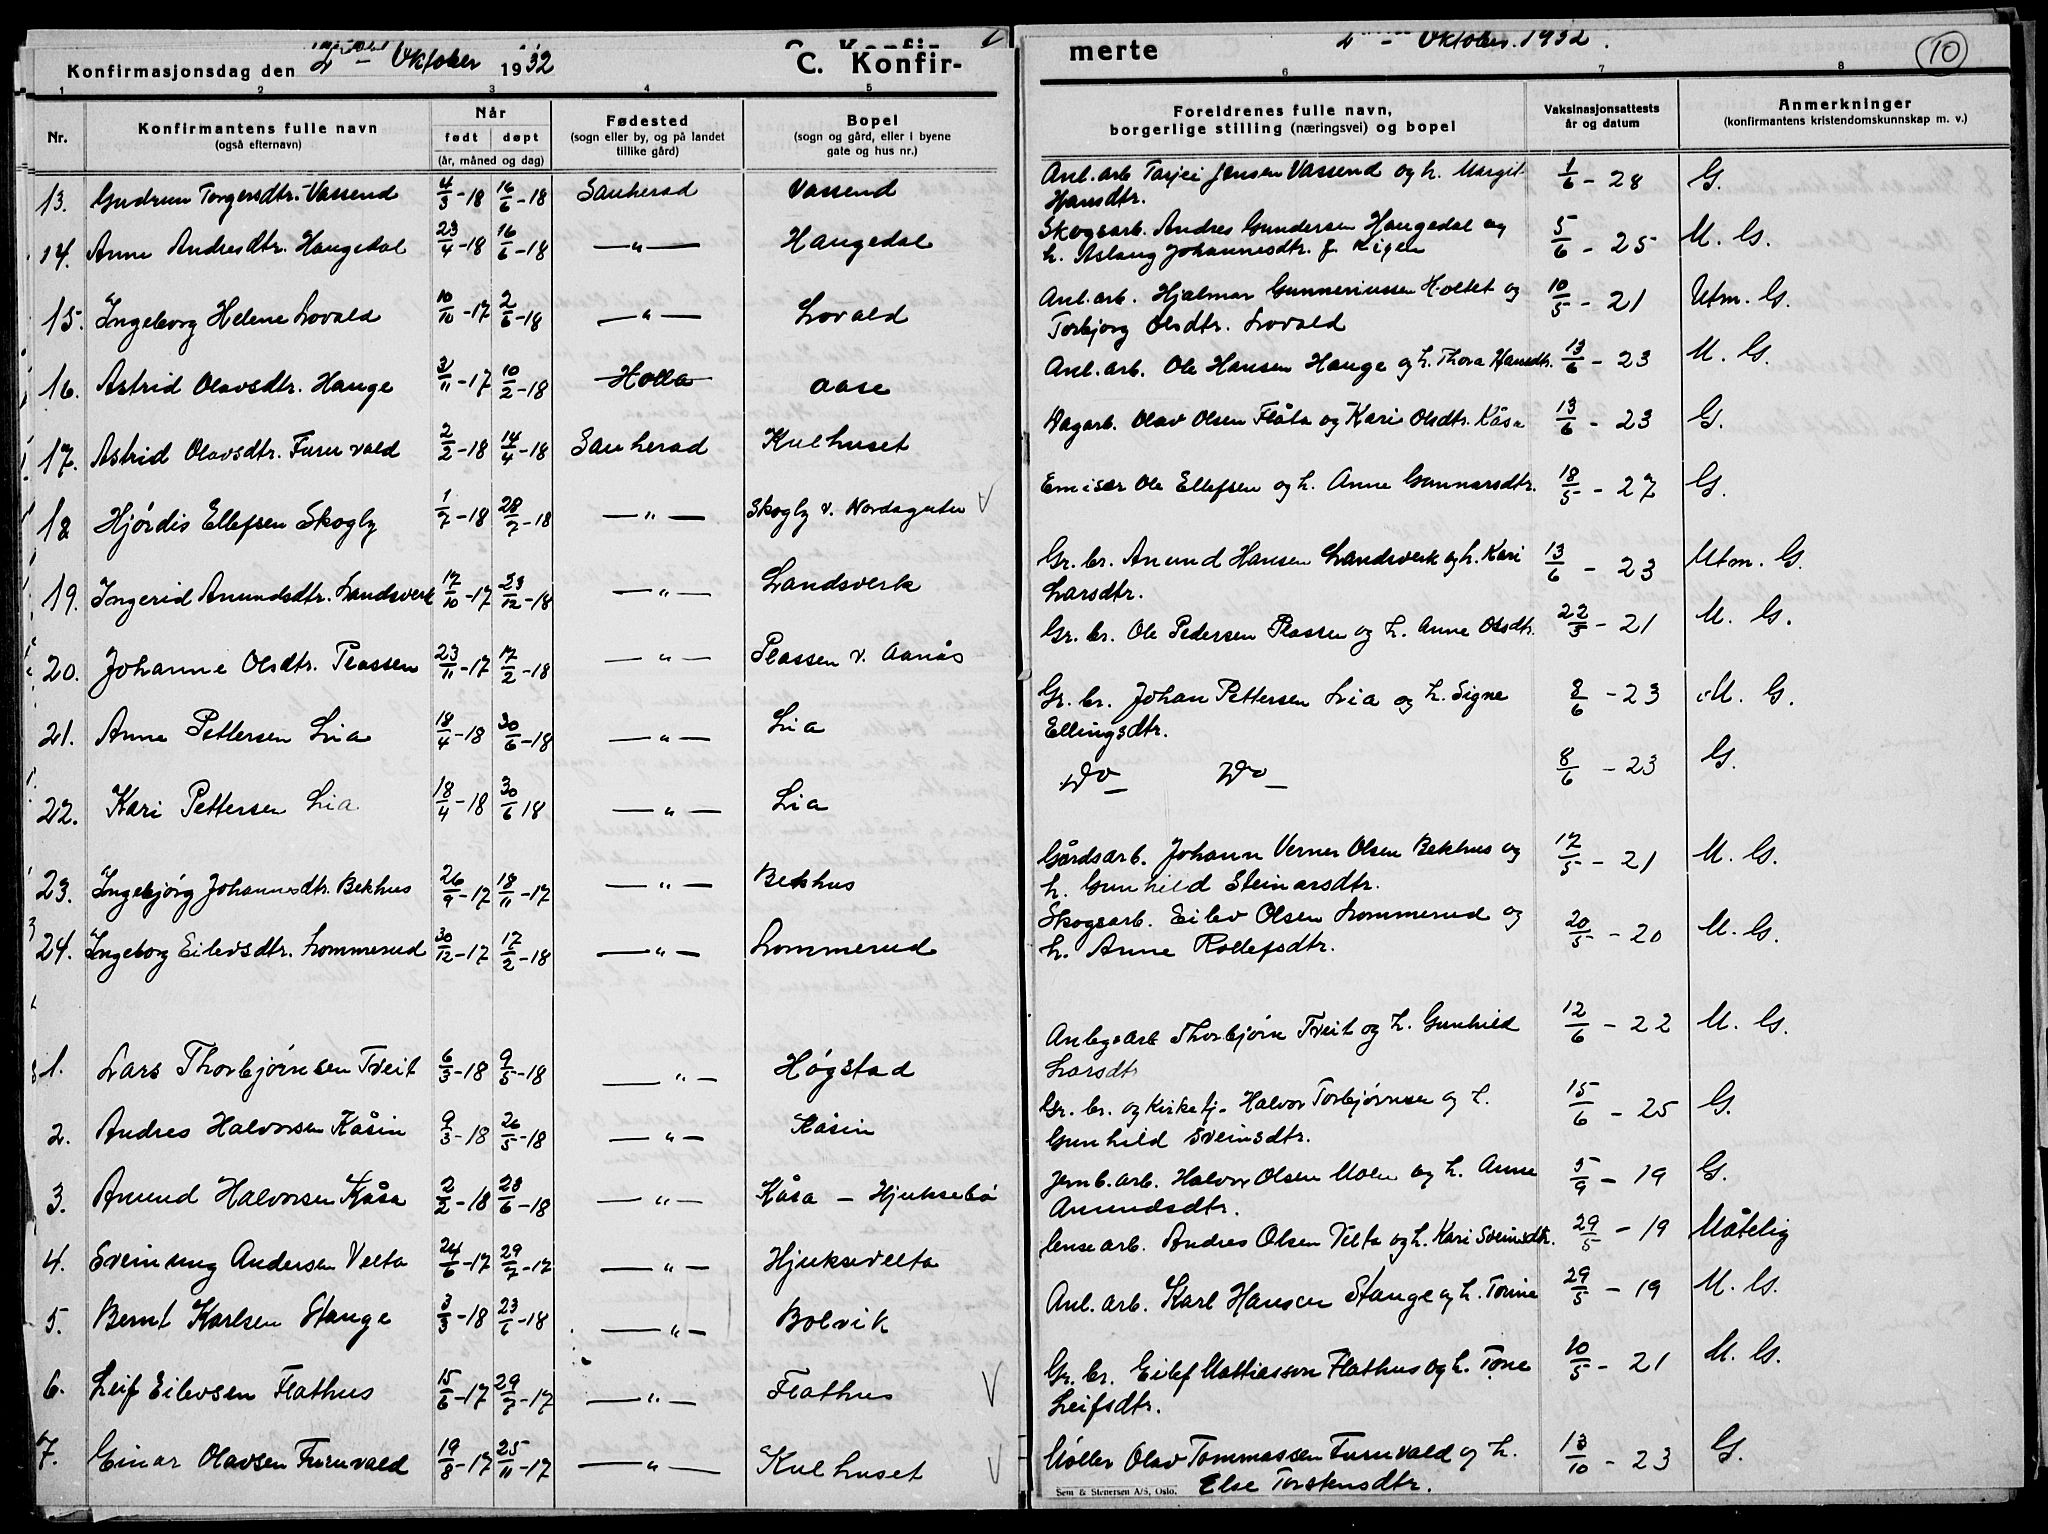 Konfirmasjonsdag den 2 Oktober 1932 C. Konfir-
merte 2 Oktober 1932. 10
1 2 3 4 5 6 7 8
Nr. Konfirmantens fulle navn (også efternavn) Når født døpt (år, måned og dag) Fødested (sogn eller by, og på landet tillike gård) Bopel (sogn og gård, eller i byene gate og hus nr.) Foreldrenes fulle navn, borgerlige stilling (næringsvei) og bopel Vaksinasjonsattests år og datum Anmerkninger (konfirmantens kristendomskunnskap m. v.)
13. Gudrun Torgersdtr. Vassend 4/3-18 16/6-18 Sauherad Vassend Anl. arb Tarjei Jensen Vassend og h. Margit 1/6 - 28 G.
Hansdtr.
14. Anne Andresdtr. Haugedal 23/4-18 16/6-18 —„— Haugedal Skogsarb. Andres Gundersen Haugedal og 5/6 - 25 M. G.
h. Aslaug Johannesdtr. f.
15. Ingeborg Helene Lovald 10/10-17 2/6-18 —„— Lovald Anl. arb. Hjalmar Gunneriussen Holtet og 10/5 - 21 Utm. G.
Torbjorg Olsdtr. Lovald
16. Astrid Olavsdtr. Hauge 3/11-17 10/2-18 Holla Aase Anl. arb. Ole Hansen Hauge og h. Thora Hansdtr. 13/6 - 23 M. G.
17. Astrid Olavsdtr. Furuvald 2/2-18 14/4-18 Sauherad Kulhuset Dagarb. Olav Olsen Flåta og Kari Olsdtr. Kåsa 13/6 - 23 G.
18 Hjørdis Ellefsen Skogly 1/7-18 28/7-18 —„— Skogly v. Nordagutu Emisær Ole Ellefsen og h. Anne Gunnarsdtr. 18/5 - 27 G.
19. Ingerid Amundsdtr. Landsverk 17/10-17 23/12-18 —„— Landsverk Gr. br. Amund Hansen Landsverk og h. Kari 13/6 - 23 Utm. G.
Larsdtr.
20. Johanne Olsdtr. Plassen 23/11-17 17/2-18 —„— Plassen v. Aanås Gr. br. Ole Pedersen Plassen og h. Anne Olsdtr. 22/5 - 21 M. G.
21. Anne Pettersen Lia 18/4-18 30/6-18 —„— Lia Gr. br. Johan Pettersen Lia og h. Signe 8/6 - 23 M. G.
Ellingsdtr.
22. Kari Pettersen Lia 18/4-18 30/6 18 —„— Lia Do Do 8/6 - 23 G.
23. Ingebjørg Johannesdtr. Bekhus 26/9-17 18/11-17 —„— Bekhus Gårdsarb. Johann Verner Olsen Bekhus og 17/5 - 21 M. G.
h. Gunhild Steinarsdtr.
24. Ingeborg Eilevsdtr. Lommerud 30/12-17 17/2-18 —„— Lommerud Skogsarb. Eilev Olsen Lommerud og 20/5 - 20 M. G.
h. Anne Rollefsdtr.
1. Lars Thorbjørnsen Tveit 6/3-18 9/5-18 —„— Høgstad Anlegsarb Thorbjørn Tveit og h. Gunhild 12/6 - 22 M. G.
Larsdtr
2. Andres Halvorsen Kåsin 9/3-18 26/5-18 —„— Kåsin Gr. br. og Kirketj. Halvor Torbjørnsen og h. 15/6 - 25 G.
Gunhild Sveinsdtr.
3. Amund Halvorsen Kåsa 2/2-18 23/6-18 —„— Kåsa - Hjuksebø Jernb. arb. Halvor Olsen Moen og h. Anne 5/9 - 19 G.
Amundsdtr.
4. Sveinung Andersen Velta 24/6-17 29/7-17 —„— Hjuksevelta Lensearb. Andres Olsen Velta og h. Kari Sveinsdtr. 29/5 - 19 Måtelig
5. Bernt Karlsen Stange 3/3-18 23/6-18 —„— Bolvik Anl. arb. Karl Hansen Stange og h. Tomine 29/5 - 19 M. G.
6. Leif Eilevsen Flathus 15/6-17 29/7-17 —„— Flathus Gr. br. Eilef Mattiassen Flathus og h. Tone 10/5 - 21 M. G.
Leifsdtr.
7. Einar Olavsen Furuvald 19/8-17 25/11-17 —„— Kulhuset Møller Olav Tommassen Furuvald og h. 13/10 - 23 G.
Else Torstensdtr.
Sem & Stenersen A/S, Oslo.